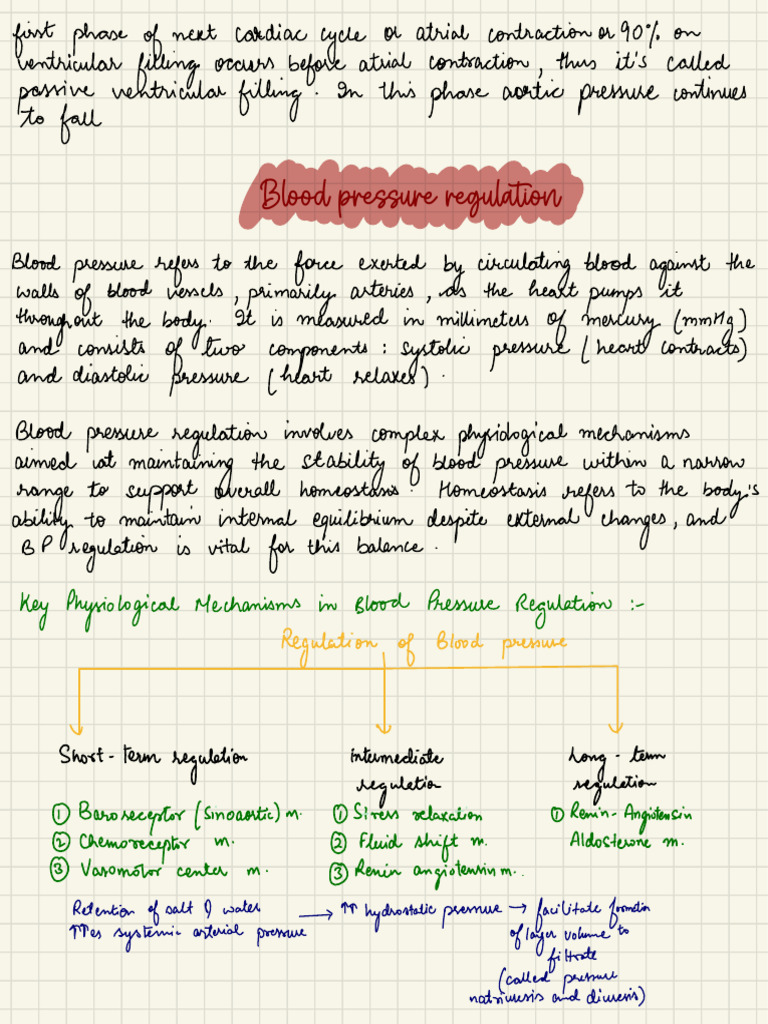 first phase of next cardiac cycle or atrial contraction or 90% on
ventricular filling occurs before atrial contraction, thus it's called
passive ventricular filling. In this phase aortic pressure continues
to fall
Blood pressure regulation
Blood pressure refers to the force exerted by circulating blood against the
walls of blood vessels, primarily arteries, as the heart pumps it
throughout the body. It is measured in millimeters of mercury (mmHg)
and consists of two components: systolic pressure (heart contracts)
and diastolic pressure (heart relaxes).
Blood pressure regulation involves complex physiological mechanisms
aimed at maintaining the stability of blood pressure within a narrow
range to support overall homeostasis. Homeostasis refers to the body's
ability to maintain internal equilibrium despite external changes, and
BP regulation is vital for this balance.
Key Physiological Mechanisms in Blood Pressure Regulation :-
Regulation of Blood pressure
Short-term regulation
① Baroreceptor (Sinoaortic) m.
② Chemoreceptor m.
③ Vasomotor center m.
Intermediate
regulation
① Stress relaxation
② Fluid shift m.
③ Renin angiotensin m..
Long-term
regulation
① Renin-Angiotensin
Aldosterone m.
Retention of salt & water
↑↑es systemic arterial pressure
→ ↑↑ hydrostatic pressure → facilitate formation
of layer volume to
filtrate
(called pressure
natriuresis and diuresis)